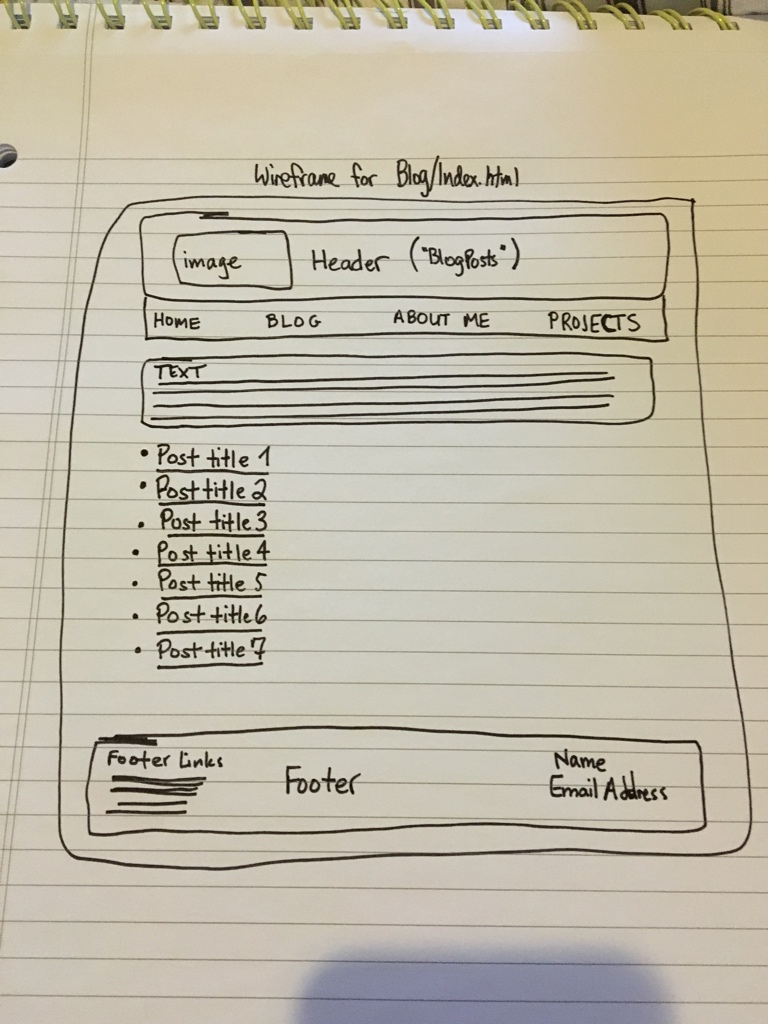 Wireframe for Blog/Index.html
image Header ("BlogPosts")
HOME BLOG ABOUT ME PROJECTS
TEXT
• Post title 1
• Post title 2
• Post title 3
• Post title 4
• Post title 5
• Post title 6
• Post title 7
Footer Links Footer Name
Email Address